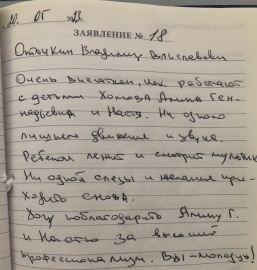 20. 05 2023.
ЗАЯВЛЕНИЕ № 18
Владимир
Очень впечатлен, как работают
с детьми Алина Ген-
надьевна и Настя. Ни одного
лишнего движения и звука.
Ребенок лежит и смотрит мультик
Ни одной слезы и желание при-
ходить снова.
Хочу поблагодарить Алину Г.
и Настю за высший
профессионализм. Вы - молодцы!